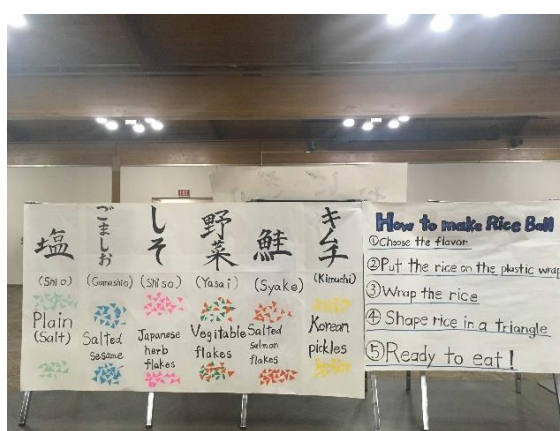 塩
(Shio)
Plain
(Salt)
ごましお
(Gomashio)
Salted
sesame
しそ
(Shiso)
Japanese
herb
flakes
野菜
(Yasai)
Vegitable
flakes
鮭
(Syake)
Salted
Salmon
flakes
キムチ
(Kimuchi)
Korean
pickles
How to make Rice Ball
①Choose the flavor
②Put the rice on the plastic wrap
③Wrap the rice
④Shape rice in a triangle
⑤Ready to eat!